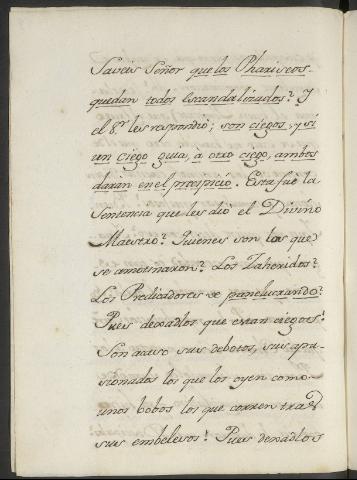 Saveis Señor que los Phariseos
quedan todos Escandalizados? Y
el S.r les respondió; son ciegos, y si
un ciego guia, à otro ciego, ambos
daràn en el presipicio. Esta fuè la
Sentencia que les diò el Divino
Maestro? Quienes son los que
se amotinaron? Los Zaheridos?
Los Predicadores se paneluxando?
Pues dexadlos que estan ciegos!
Son acaso sus debotos, sus apa-
sionados los que los oyen como
unos bobos los que corren tras
sus embelesos! Pues dexadlos